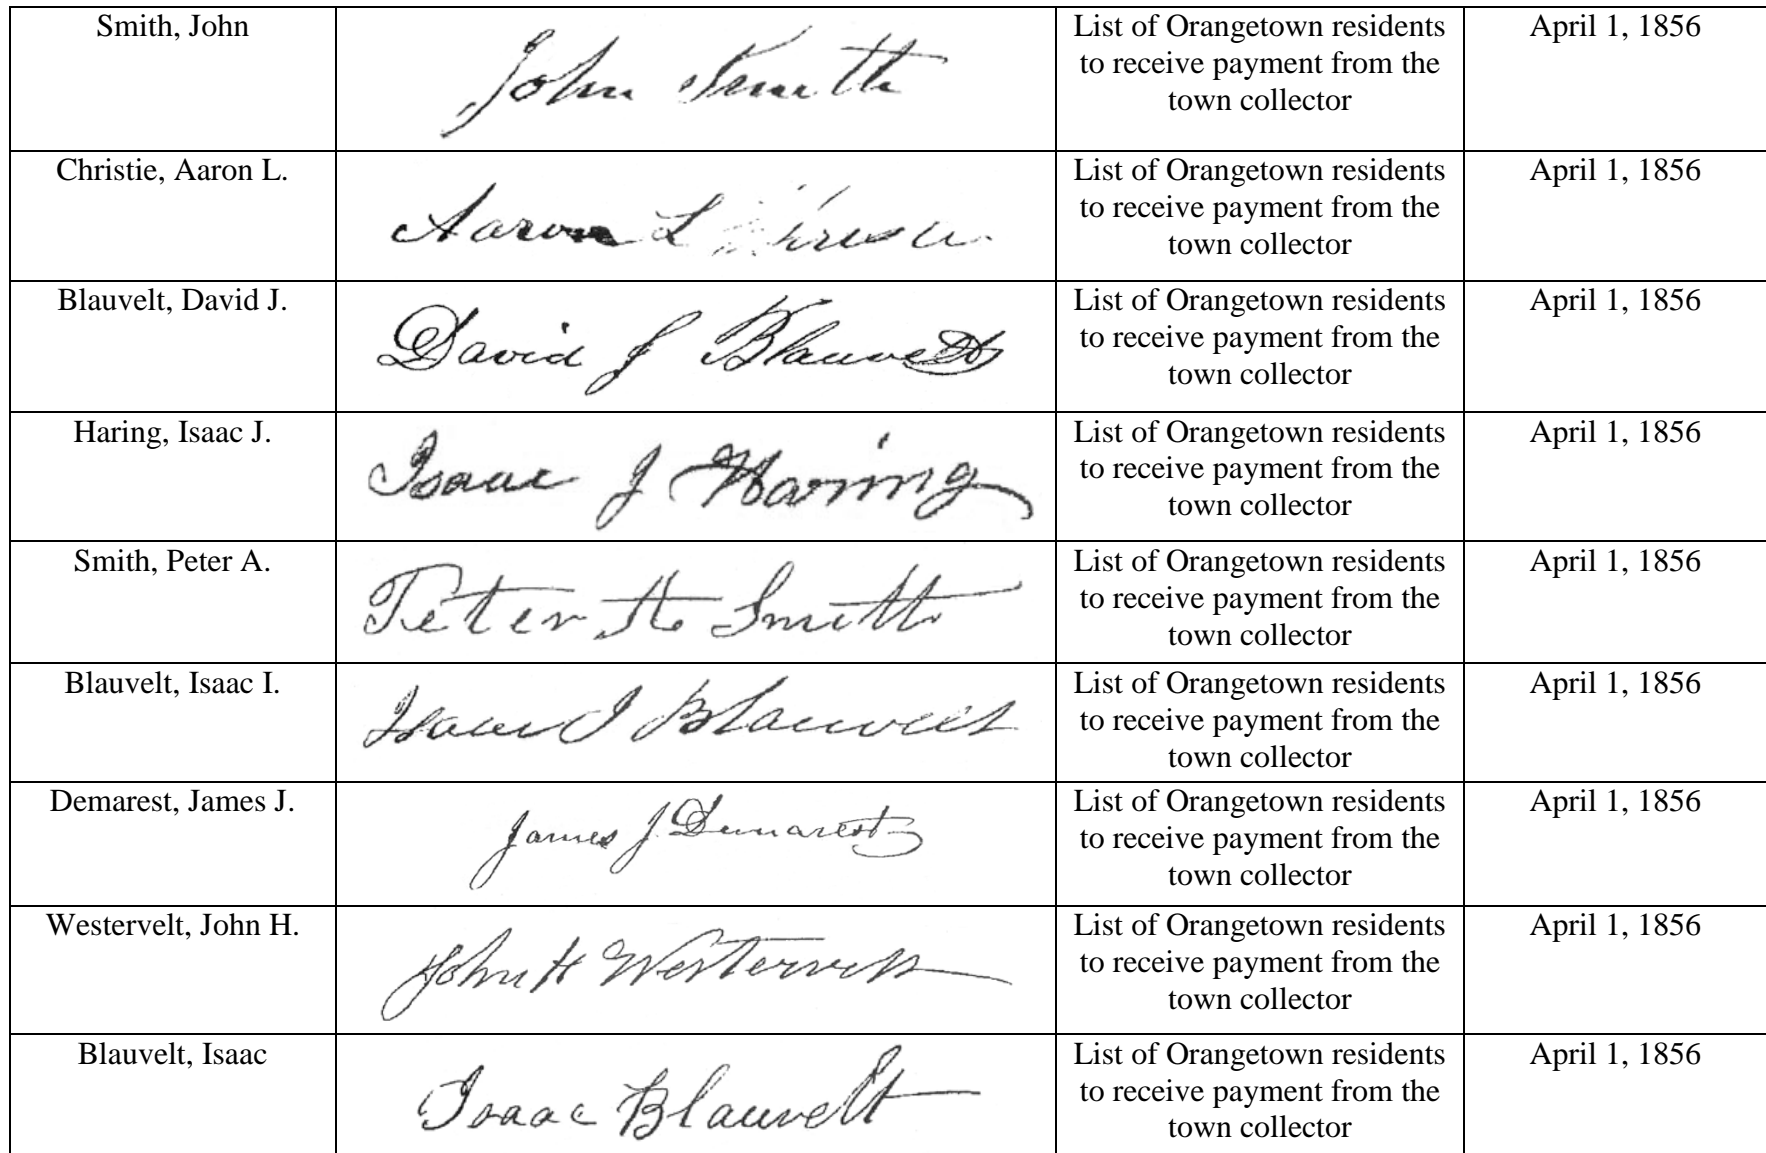 Smith, John
John Smith
List of Orangetown residents
to receive payment from the
town collector
April 1, 1856
Christie, Aaron L.
Aaron L
List of Orangetown residents
to receive payment from the
town collector
April 1, 1856
Blauvelt, David J.
David J Blauvelt
List of Orangetown residents
to receive payment from the
town collector
April 1, 1856
Haring, Isaac J.
Isaac J Haring
List of Orangetown residents
to receive payment from the
town collector
April 1, 1856
Smith, Peter A.
Peter A Smith
List of Orangetown residents
to receive payment from the
town collector
April 1, 1856
Blauvelt, Isaac I.
Isaac I Blauvelt
List of Orangetown residents
to receive payment from the
town collector
April 1, 1856
Demarest, James J.
James J. Demarest
List of Orangetown residents
to receive payment from the
town collector
April 1, 1856
Westervelt, John H.
John H Westervelt
List of Orangetown residents
to receive payment from the
town collector
April 1, 1856
Blauvelt, Isaac
Isaac Blauvelt
List of Orangetown residents
to receive payment from the
town collector
April 1, 1856